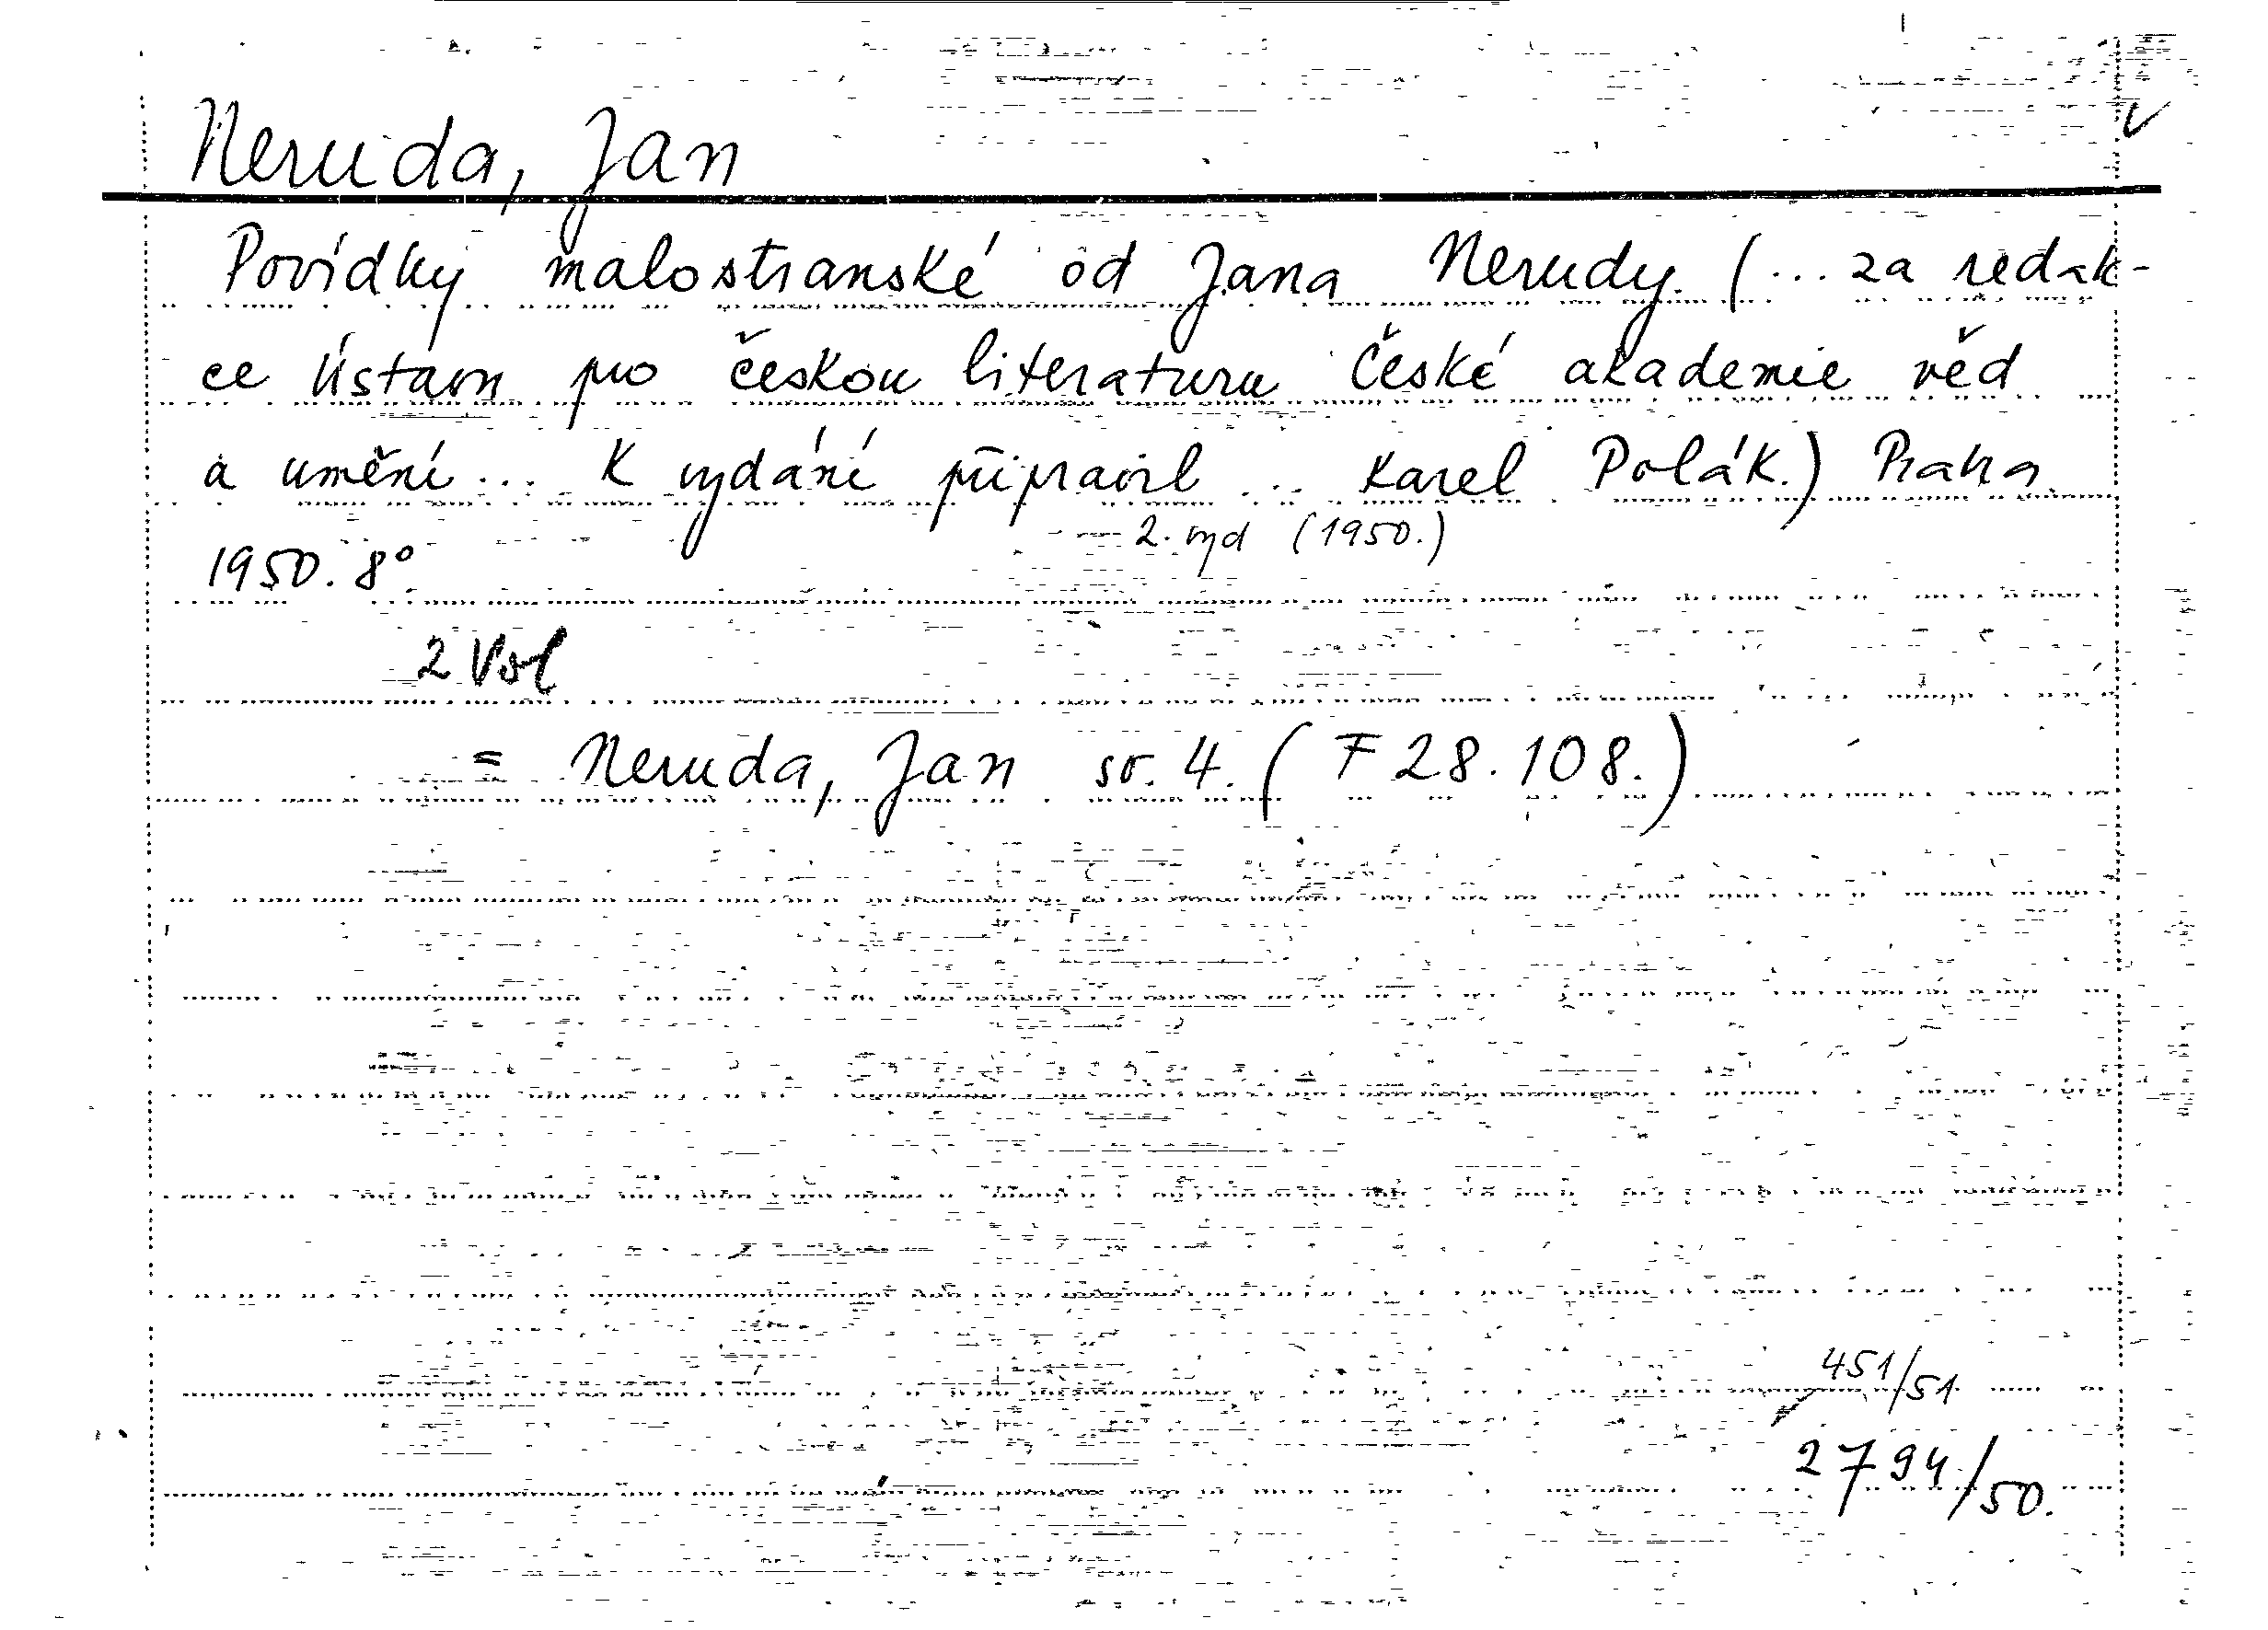 Neruda, Jan
Povídky malostranské od Jana Nerudy. (... za redak-
ce Ústavu pro českou literaturu České akademie věd
a umění... K vydání připravil ... Karel Polák.) Praha
2. vyd (1950.)
1950. 8°
2 Vol
= Neruda, Jan sv. 4. (F 28.108.)
451/51
2794/50.